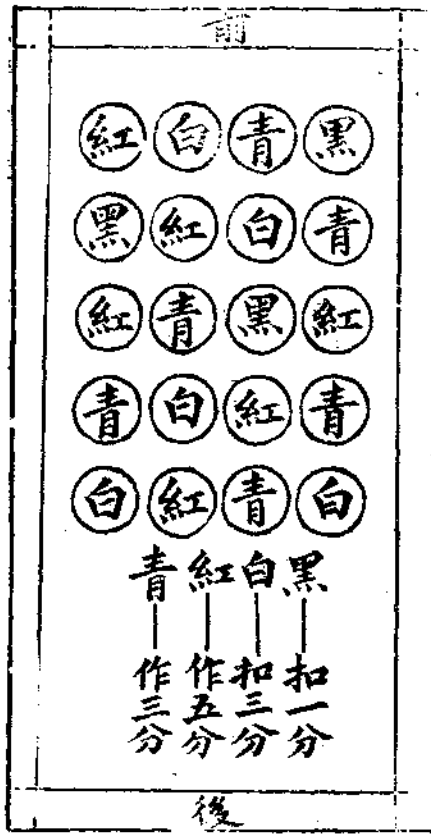 前
紅 白 青 黑
黑 紅 白 青
紅 青 黑 紅
青 白 紅 青
白 紅 青 白
黑—扣一分
白—扣三分
紅—作五分
青—作三分
後